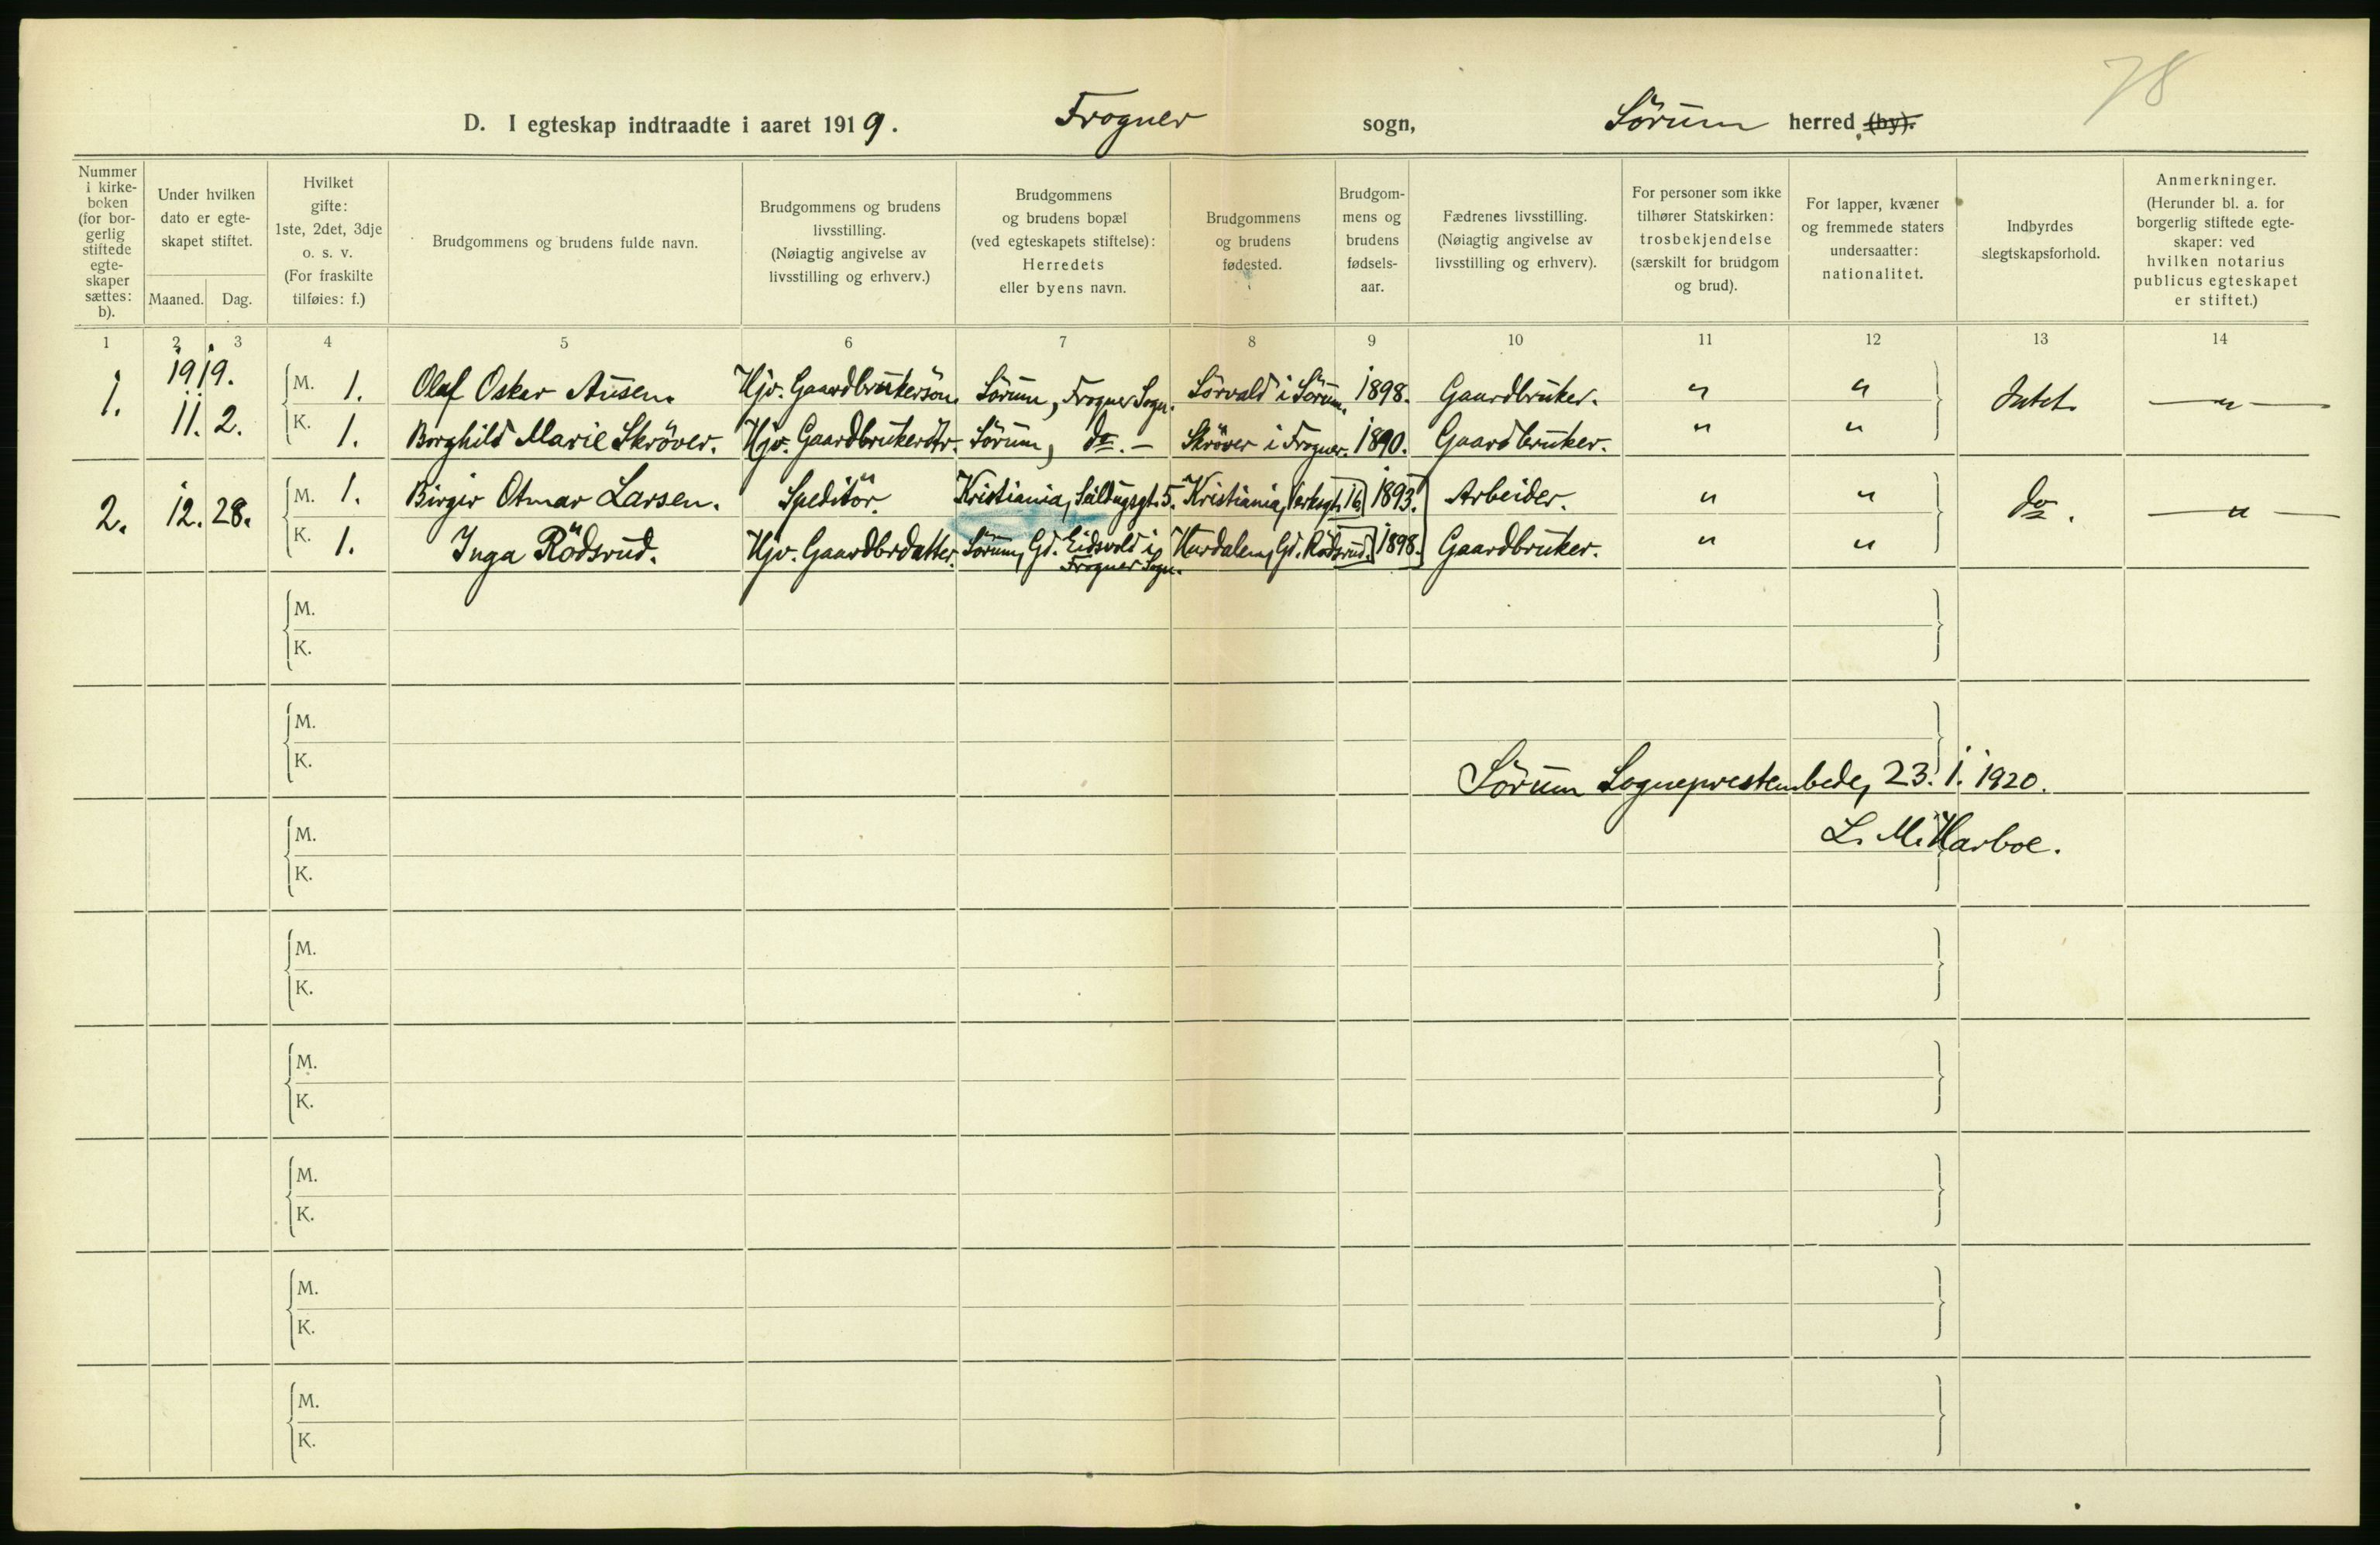 78
D. I egteskap indtraadte i aaret 1919. Frogner sogn, Sörum herred (by).
Nummer i kirke-boken (for bor-gerlig stiftede egte-skaper sættes: b).
Under hvilken dato er egte-skapet stiftet.
Maaned. Dag.
Hvilket gifte: 1ste, 2det, 3dje o. s. v. (For fraskilte tilføies: f.)
Brudgommens og brudens fulde navn.
Brudgommens og brudens livsstilling. (Nøiagtig angivelse av livsstilling og erhverv.)
Brudgommens og brudens bopæl (ved egteskapets stiftelse): Herredets eller byens navn.
Brudgommens og brudens fødested.
Brudgom-mens og brudens fødsels-aar.
Fædrenes livsstilling. (Nøiagtig angivelse av livsstilling og erhverv).
For personer som ikke tilhører Statskirken: trosbekjendelse (særskilt for brudgom og brud).
For lapper, kvæner og fremmede staters undersaatter: nationalitet.
Indbyrdes slegtskapsforhold.
Anmerkninger. (Herunder bl. a. for borgerlig stiftede egte-skaper: ved hvilken notarius publicus egteskapet er stiftet.)
1 2 3 4 5 6 7 8 9 10 11 12 13 14
1919.
1. M. 1. Olaf Oskar Ausen. Hjv. Gaardbrukersön. Sörum, Frogner Sogn. Sörvald i Sörum. 1898. Gaardbruker. " " Intet. — " —
11. 2. K. 1. Borghild Marie Skröver. Hjv. Gaardbrukerdtr. Sörum, do. - Skröver i Frogner. 1890. Gaardbruker. " "
2. 12. 28. M. 1. Birger Otmar Larsen. Speditör. Kristiania, 5. Kristiania, 16. 1893. Arbeider. " " do. — " —
K. 1. Inga Rödsrud. Hjv. Gaardbrdatter. Sörum, Gd. Eidsvold i Frogner Sogn. Hurdalen, Gd. Rödsrud. 1898. Gaardbruker. " "
M.
K.
M.
K.
Sörum Sogneprestembede, 23. 1. 1920.
L. M. Harboe.
M.
K.
M.
K.
M.
K.
M.
K.
M.
K.
M.
K.